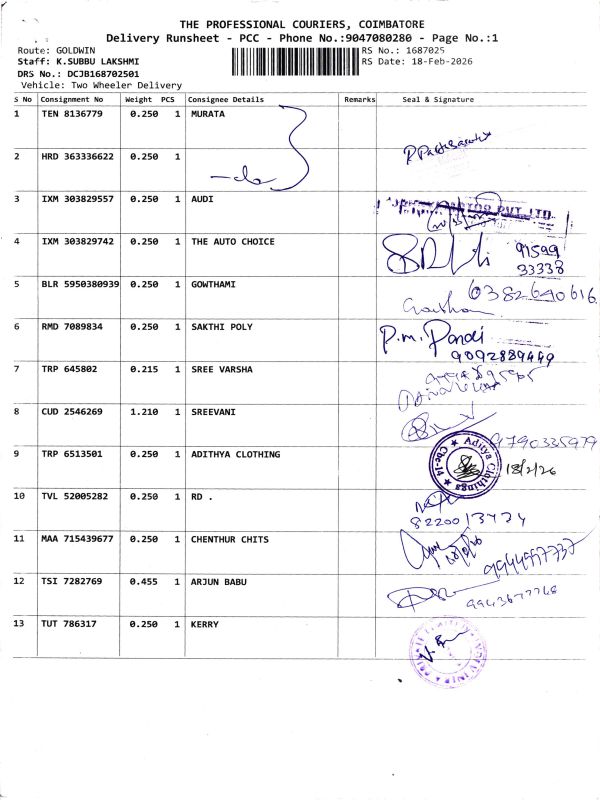 THE PROFESSIONAL COURIERS, COIMBATORE
Delivery Runsheet - PCC - Phone No.:9047080280 - Page No.:1
Route: GOLDWIN
RS No.: 1687025
Staff: K.SUBBU LAKSHMI
RS Date: 18-Feb-2026
DRS No.: DCJB168702501
Vehicle: Two Wheeler Delivery
S No Consignment No Weight PCS Consignee Details Remarks Seal & Signature
1 TEN 8136779 0.250 1 MURATA
2 HRD 363336622 0.250 1 -do
3 IXM 303829557 0.250 1 AUDI
PVT. LTD.
4 IXM 303829742 0.250 1 THE AUTO CHOICE 91599
33338
5 BLR 5950380939 0.250 1 GOWTHAMI 6382690616
6 RMD 7089834 0.250 1 SAKTHI POLY P.m. Pandi
9092889449
7 TRP 645802 0.215 1 SREE VARSHA
8 CUD 2546269 1.210 1 SREEVANI
9790335979
9 TRP 6513501 0.250 1 ADITHYA CLOTHING Aditya Clothings Cbe-14 18/2/26
10 TVL 52005282 0.250 1 RD .
11 MAA 715439677 0.250 1 CHENTHUR CHITS
12 TSI 7282769 0.455 1 ARJUN BABU
13 TUT 786317 0.250 1 KERRY